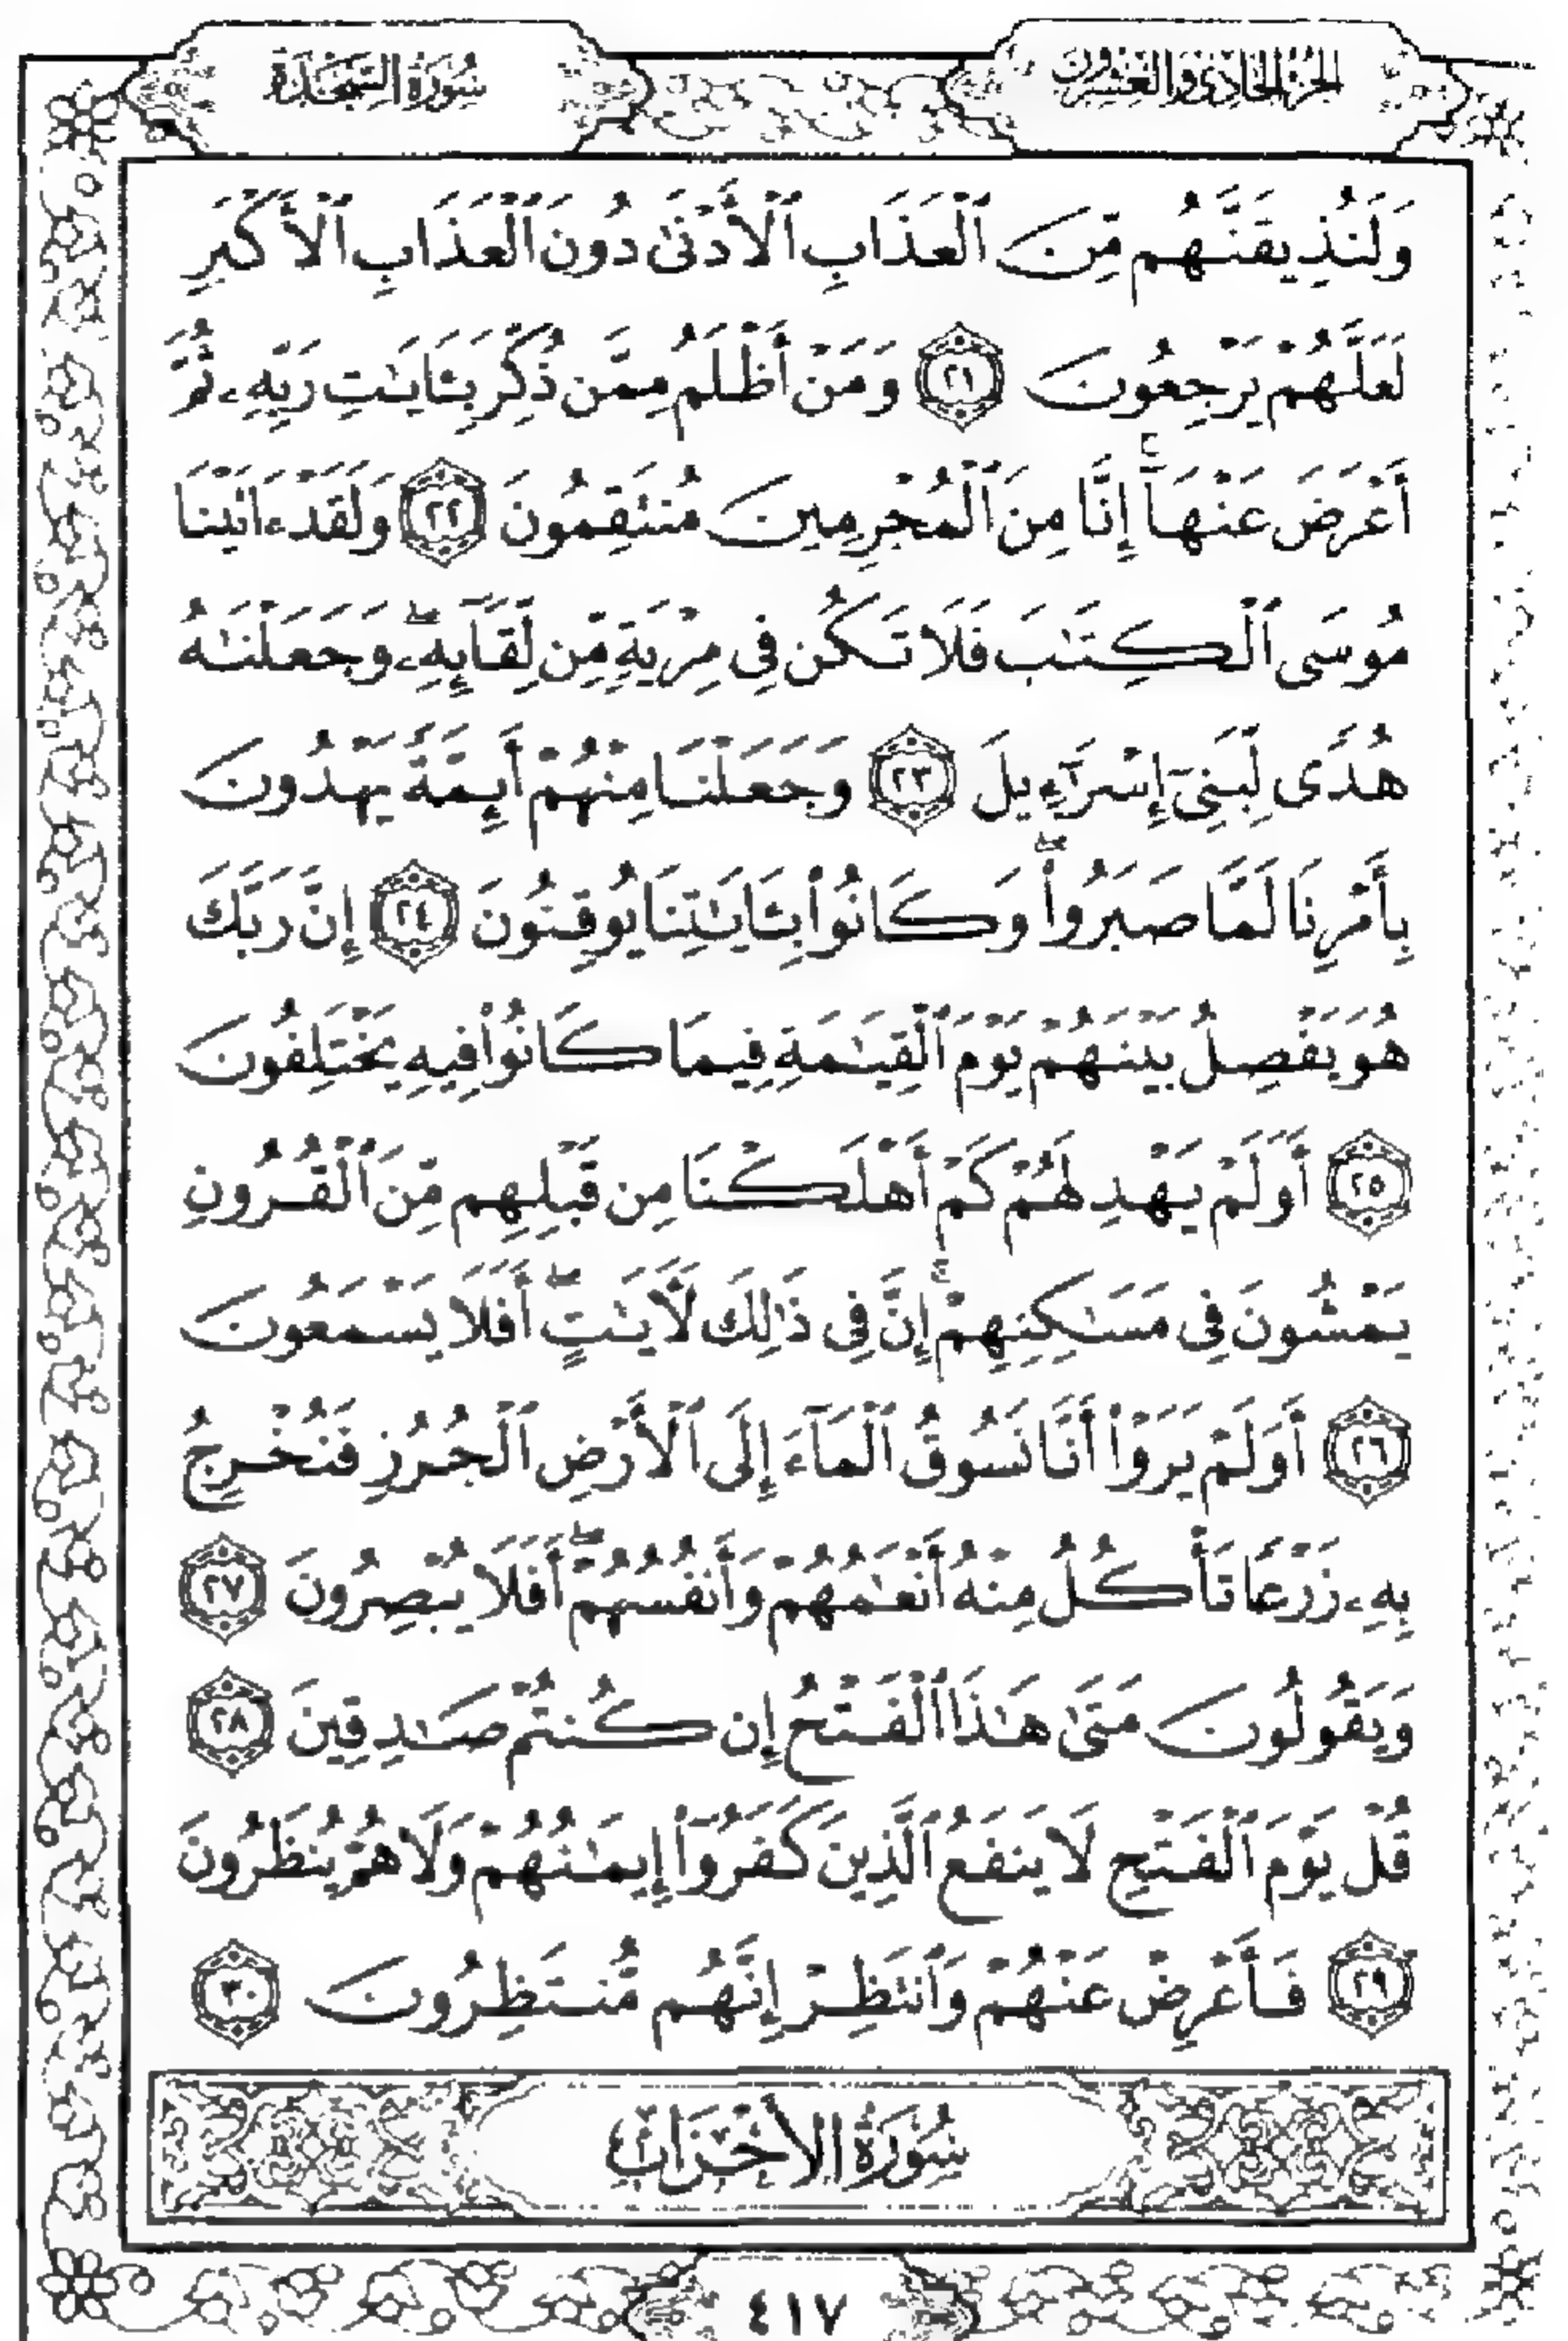 الجزء الحادي والعشرون
سورة السجدة
وَلَنُذِيقَنَّهُم مِّنَ ٱلْعَذَابِ ٱلْأَدْنَىٰ دُونَ ٱلْعَذَابِ ٱلْأَكْبَرِ
لَعَلَّهُمْ يَرْجِعُونَ ٢١ وَمَنْ أَظْلَمُ مِمَّن ذُكِّرَ بِـَٔايَـٰتِ رَبِّهِۦ ثُمَّ
أَعْرَضَ عَنْهَآ ۚ إِنَّا مِنَ ٱلْمُجْرِمِينَ مُنتَقِمُونَ ٢٢ وَلَقَدْ ءَاتَيْنَا
مُوسَى ٱلْكِتَـٰبَ فَلَا تَكُن فِى مِرْيَةٍ مِّن لِّقَآئِهِۦ ۖ وَجَعَلْنَـٰهُ
هُدًى لِّبَنِىٓ إِسْرَٰٓءِيلَ ٢٣ وَجَعَلْنَا مِنْهُمْ أَئِمَّةً يَهْدُونَ
بِأَمْرِنَا لَمَّا صَبَرُوا۟ ۖ وَكَانُوا۟ بِـَٔايَـٰتِنَا يُوقِنُونَ ٢٤ إِنَّ رَبَّكَ
هُوَ يَفْصِلُ بَيْنَهُمْ يَوْمَ ٱلْقِيَـٰمَةِ فِيمَا كَانُوا۟ فِيهِ يَخْتَلِفُونَ
٢٥ أَوَلَمْ يَهْدِ لَهُمْ كَمْ أَهْلَكْنَا مِن قَبْلِهِم مِّنَ ٱلْقُرُونِ
يَمْشُونَ فِى مَسَـٰكِنِهِمْ ۚ إِنَّ فِى ذَٰلِكَ لَـَٔايَـٰتٍ ۖ أَفَلَا يَسْمَعُونَ
٢٦ أَوَلَمْ يَرَوْا۟ أَنَّا نَسُوقُ ٱلْمَآءَ إِلَى ٱلْأَرْضِ ٱلْجُرُزِ فَنُخْرِجُ
بِهِۦ زَرْعًا تَأْكُلُ مِنْهُ أَنْعَـٰمُهُمْ وَأَنفُسُهُمْ ۖ أَفَلَا يُبْصِرُونَ ٢٧
وَيَقُولُونَ مَتَىٰ هَـٰذَا ٱلْفَتْحُ إِن كُنتُمْ صَـٰدِقِينَ ٢٨
قُلْ يَوْمَ ٱلْفَتْحِ لَا يَنفَعُ ٱلَّذِينَ كَفَرُوٓا۟ إِيمَـٰنُهُمْ وَلَا هُمْ يُنظَرُونَ
٢٩ فَأَعْرِضْ عَنْهُمْ وَٱنتَظِرْ إِنَّهُم مُّنتَظِرُونَ ٣٠
سُورَةُ الأَحْزَابِ
٤١٧